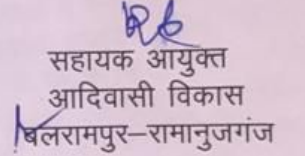 सहायक आयुक्त
आदिवासी विकास
बलरामपुर–रामानुजगंज